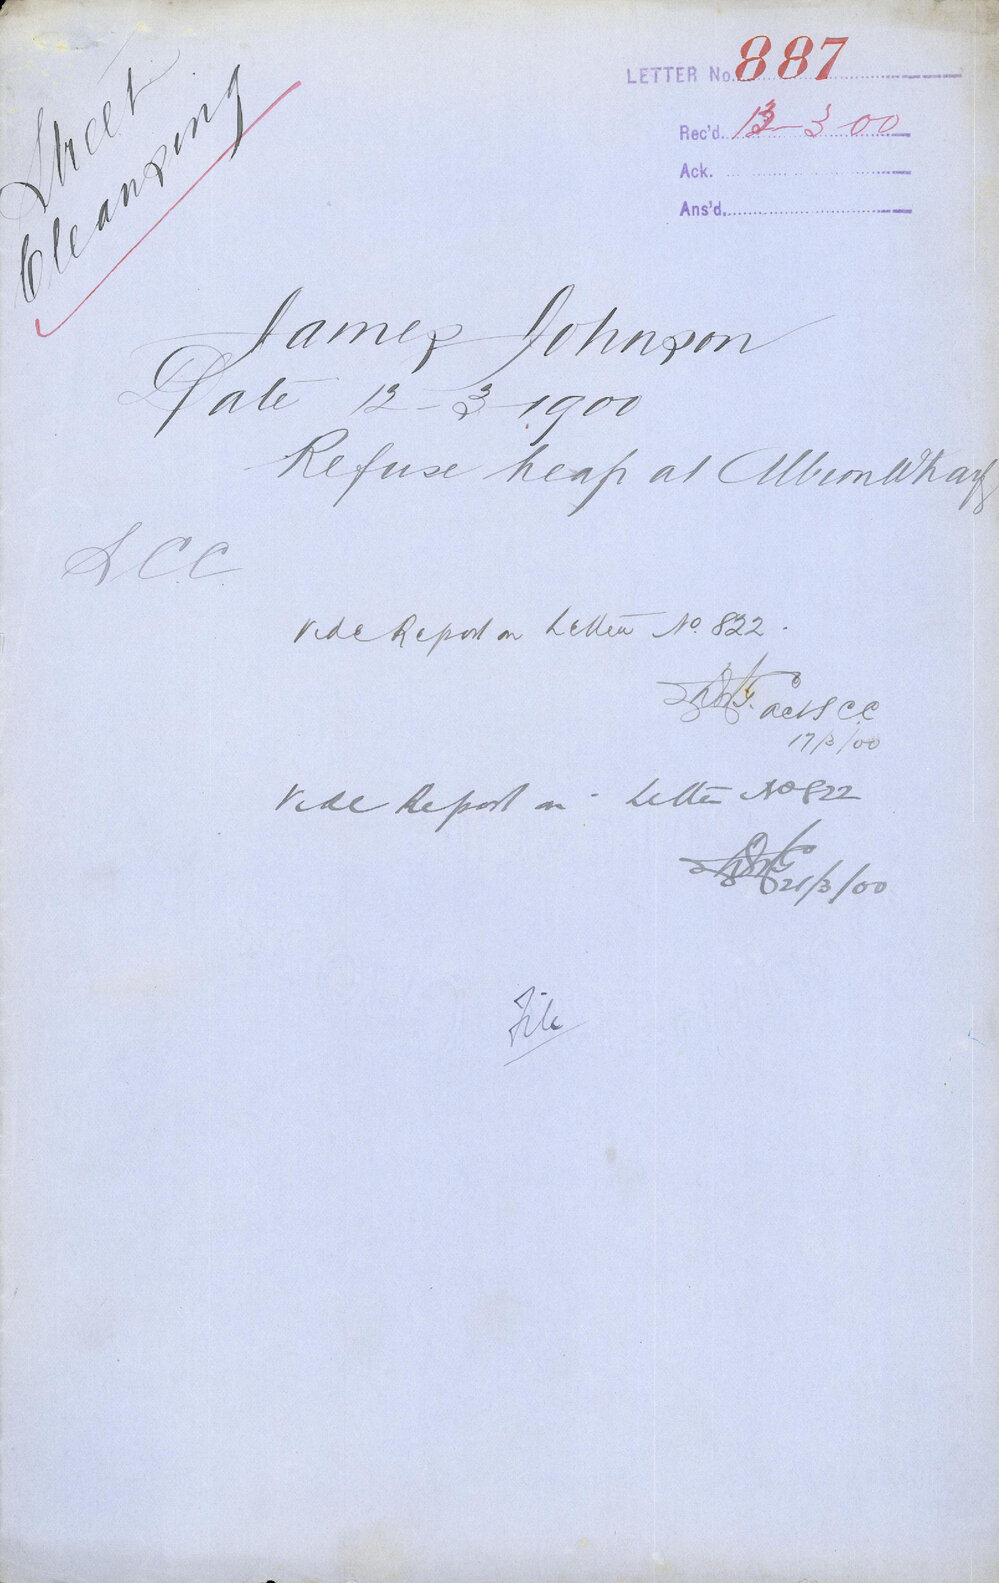 Street
Cleansing
LETTER No. 887
Rec'd. 13-3-00
Ack.
Ans'd.
James Johnson
Date 12-3-1900
Refuse heap at Albion Wharf
S.C.C.
Vide Report on Letter No. 822.
Act S C C
17/3/00
Vide Report on Letter No 822
21/3/00
File